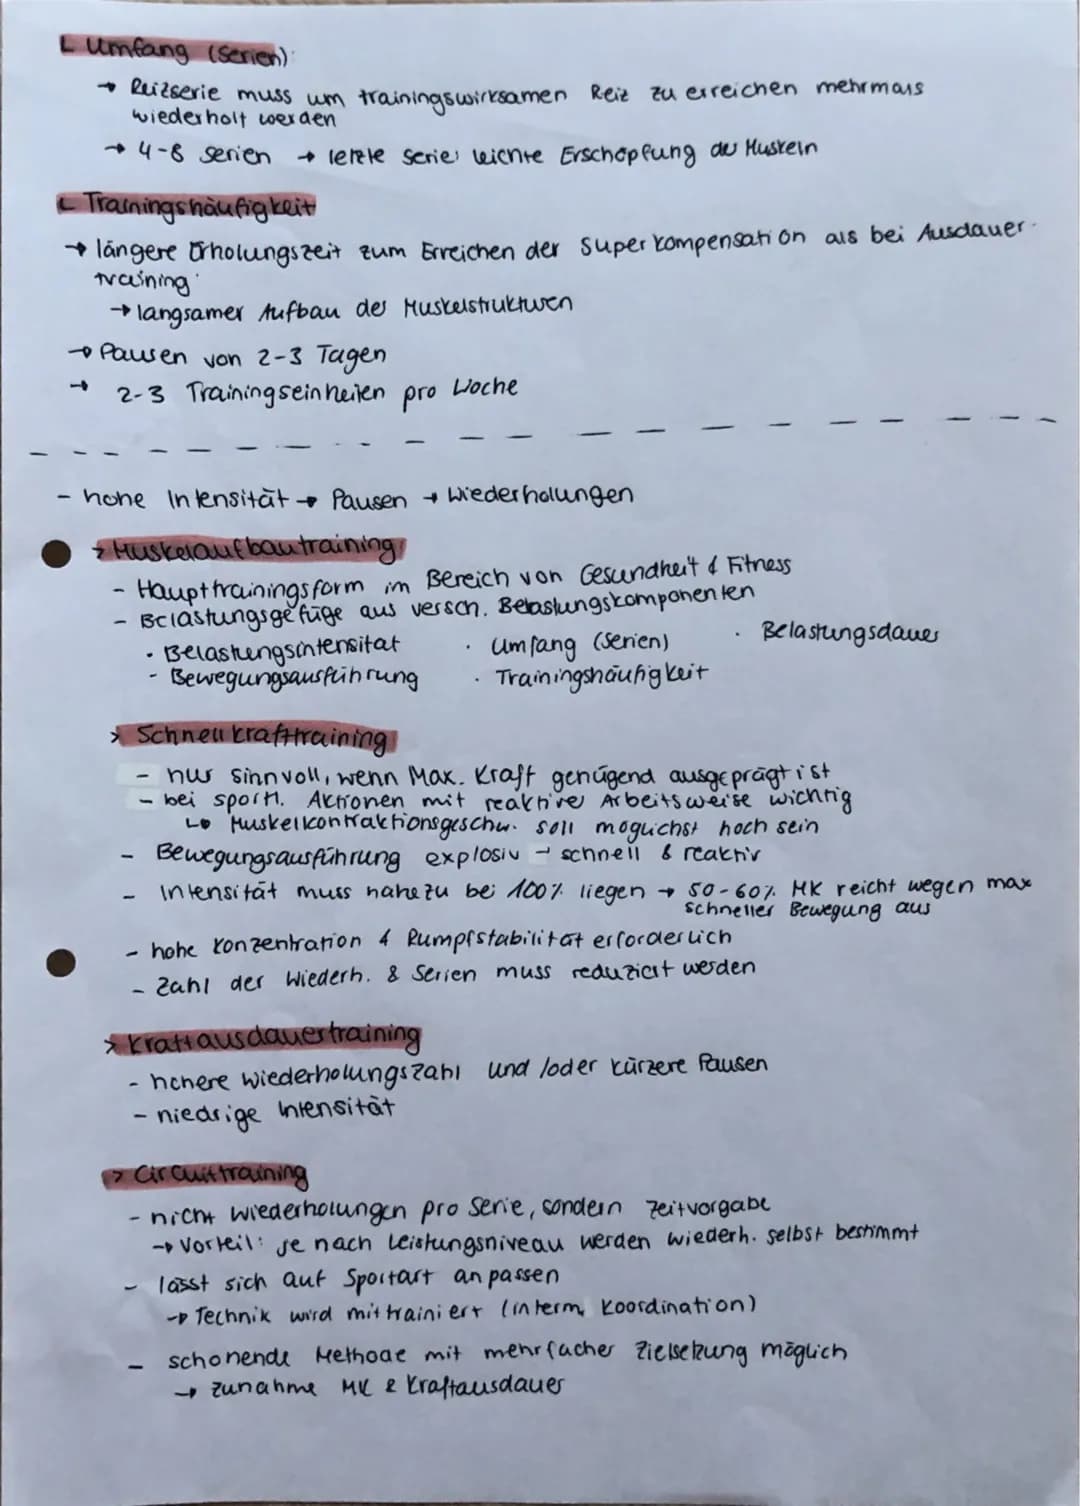 L Umfang (Serien):
→ Reizserie muss um trainingswirksamen Reiz zu erreichen mehrmals
wiederholt werden
→ 4-8 Serien → letzte Serie: leichte Erschöpfung der Muskeln
L Trainingshäufigkeit
→ längere Erholungszeit zum Erreichen der Superkompensation als bei Ausdauer-
training
→ langsamer Aufbau der Muskelstrukturen
→ Pausen von 2-3 Tagen
→ 2-3 Trainingseinheiten pro Woche
- hohe Intensität → Pausen → Wiederholungen
> Muskelaufbautraining
- Haupttrainingsform im Bereich von Gesundheit & Fitness
- Belastungsgefüge aus versch. Belastungskomponenten
· Belastungsintensität · Umfang (Serien) · Belastungsdauer
- Bewegungsausführung · Trainingshäufigkeit
> Schnellkrafttraining
- nur sinnvoll, wenn Max. Kraft genügend ausgeprägt ist
- bei sportl. Aktionen mit reaktiver Arbeitsweise wichtig
↳ Muskelkontraktionsgeschw. soll möglichst hoch sein
- Bewegungsausführung explosiv → schnell & reaktiv
- Intensität muss nahezu bei 100% liegen → 50-60% MK reicht wegen max
schneller Bewegung aus
- hohe Konzentration & Rumpfstabilität erforderlich
- Zahl der Wiederh. & Serien muss reduziert werden
> Kraftausdauertraining
- höhere Wiederholungszahl und/oder kürzere Pausen
- niedrige Intensität
> Circuittraining
- nicht Wiederholungen pro Serie, sondern Zeitvorgabe
→ Vorteil: je nach Leistungsniveau werden Wiederh. selbst bestimmt
- lässt sich auf Sportart anpassen
→ Technik wird mittrainiert (interm. Koordination)
- schonende Methode mit mehrfacher Zielsetzung möglich
→ Zunahme MK & Kraftausdauer